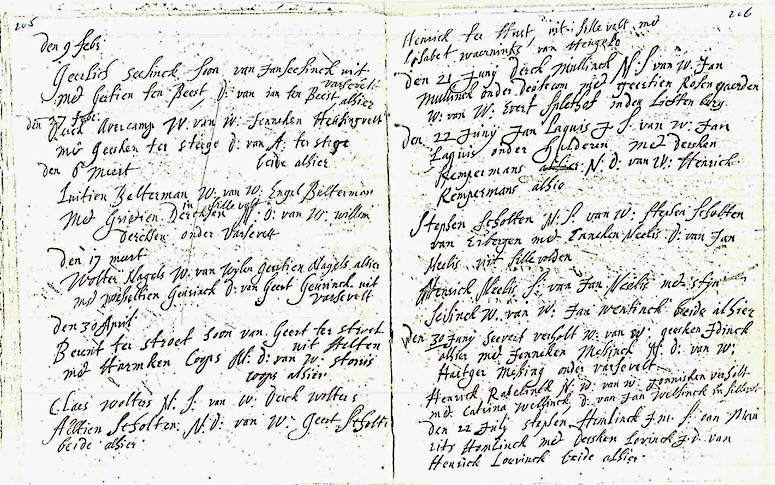 205
den 9 febr
Geerlich Seesinck soon van Jan seesinck uit varsevelt
met Gertien ten Beest D: van ian ten Beest alhier
den 27 febr:
Avercamp W: van W: Jenneken
met Geesken ter stege D: van A: ter stege
beide alhier
den 6 meert
Luitien Belterman W: van W: Engel Belterman
in sillevolt
Met Grietien Dercksen N: D: van W: willem
Dercksen onder Varsevelt
den 17 meert
Wolter Nagels W. van Geertien Nagels alhier
met Geurinck D: van Geert Geurinck uit
varsevelt
den 30 April
Berent ter stroet soon van Geert ter stroet
uit Aelten
met Harmken Coops N: D: van W:
coops alhier.
Claes wolters N. S. van W: Derck wolters
Aeltien Scholten: N. D: van W: Geert Scholten
beide alhier
206
Henrick ter Hust, uit sillevolt met
Lisabet waerninks van Hengelo
den 21 Juny Derck Mullinck N. S. van W. Jan
Mullinck onder Deotecom met geertien Rosengaerden
W: van W. Evert in den
Den 22 Juny Jan Laguis J S. van W: Jan
Laguis onder Gelderen met Dersken
Rempermans N: D: van W: Henrick
Rempermans alhio
Stephen Scholten N. S. van W: Stephen Scholten
van Eibergen met Enneken Neelis D: van Jan
Neelis uit sillevolden
Henrick Neelis S: van Jan Neelis met stijn
Seesinck W. van W: Jan wentinck beide alhier
den 30 Juny Seevert verholt W: van W: geesken
alhier met Jenneken Messinck N: D: van W:
Messing onder varsevelt
Henrick Rabelinck N: W: van W: Jonnicken verholt
met Catrina Welsinck, D: van Jan Welsinck in sillevolt
den 22 July stephen Homlinck J.m: S: van
Homlinck met Dersken Lovinck J.d: van
Henrick Louvinck beide alhier